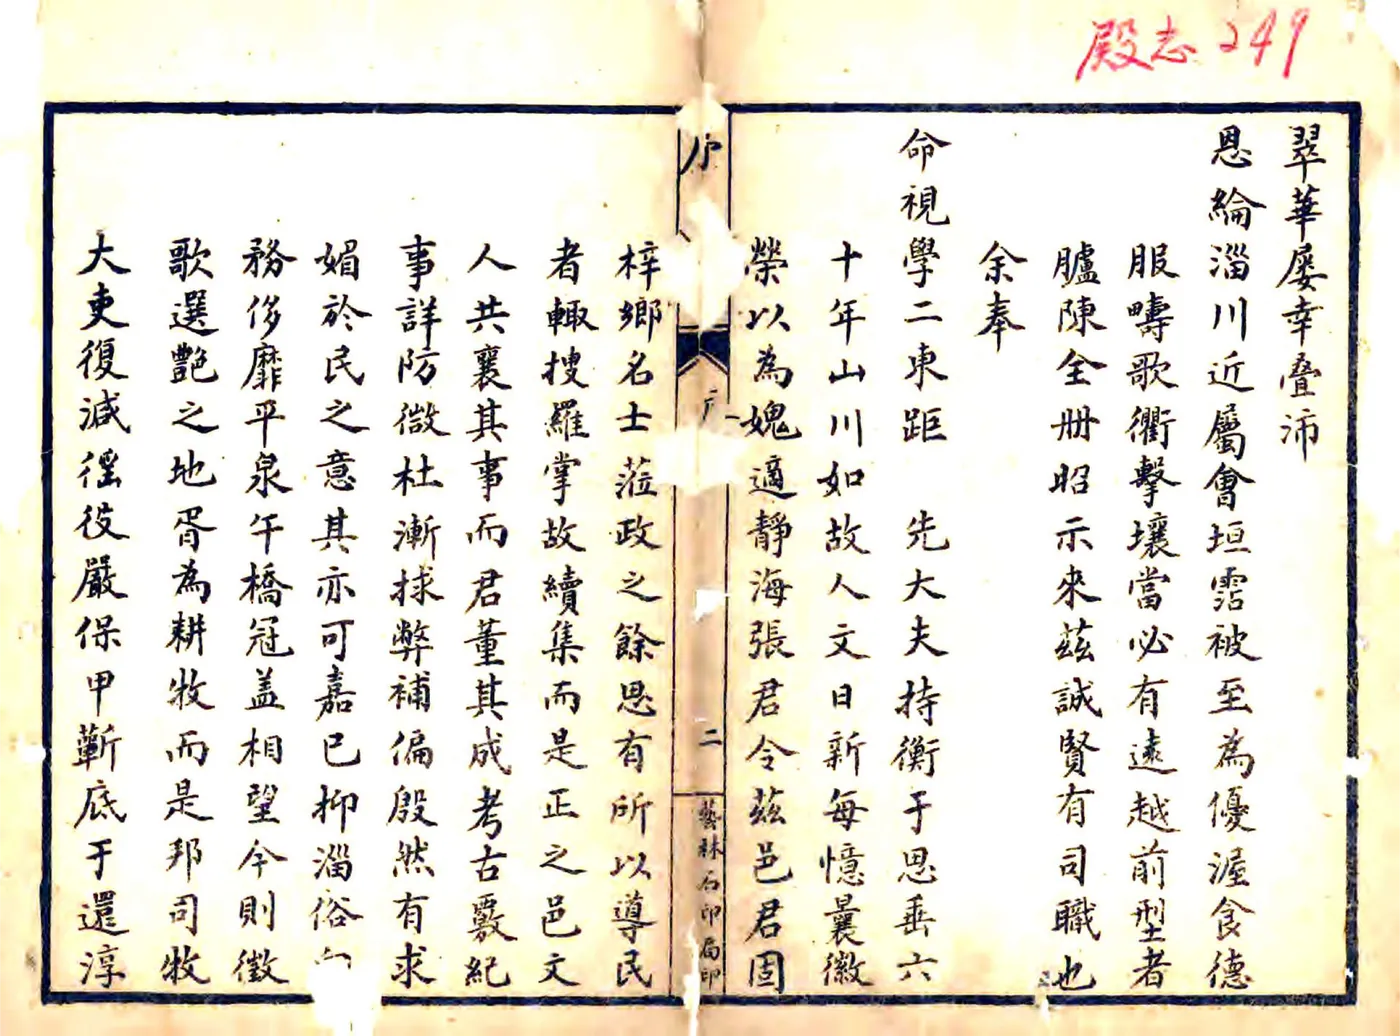 殿志 249
翠華屢幸疊沛
恩綸淄川近屬會垣霑被至為優渥食德
服疇歌衢擊壤當必有遠越前型者
臚陳全冊昭示來茲誠賢有司職也
余奉
命視學二東距 先大夫持衡于思垂六
十年山川如故人文日新每憶曩徽
榮以為媿適靜海張君令茲邑君固
序
二
藝林石印局印
梓鄉名士蒞政之餘思有所以導民
者輙搜羅掌故續集而是正之邑文
人共襄其事而君董其成考古覈紀
事詳防微杜漸捄弊補偏殷然有求
媚於民之意其亦可嘉已抑淄俗
務侈靡平泉午橋冠盖相望今則徵
歌選艷之地胥為耕牧而是邦司牧
大吏復減徭役嚴保甲蘄底于還淳